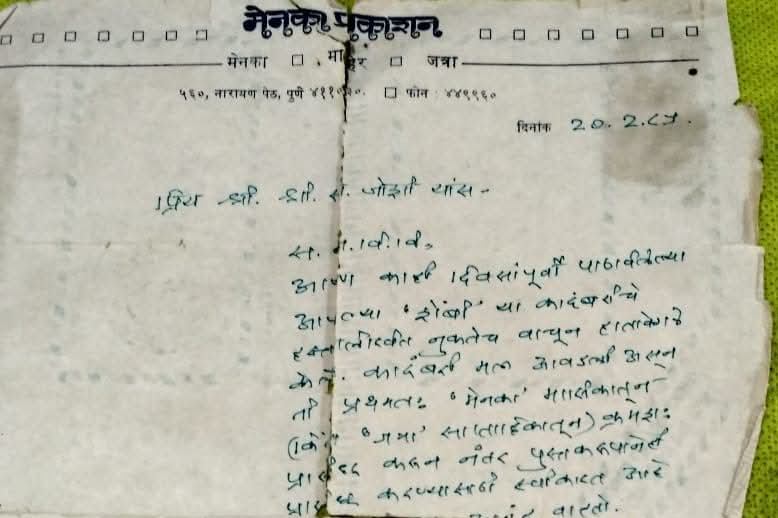 मेनका प्रकाशन
मेनका □ माहेर □ जत्रा
५६०, नारायण पेठ, पुणे ४११०३०. □ फोन : ४४९९६०
दिनांक 20.2.८५.
प्रिय श्री. श्री. स. जोशी यांस -
स. न. वि. वि.
आपण काही दिवसांपूर्वी पाठविलेल्या
आपल्या ' या कादंबरीचे
हस्तलिखीत नुकतेच वाचून हातावेगळे
केले. कादंबरी मला आवडली असून
ती प्रथमतः 'मेनका' मासिकातून
(किंवा 'जत्रा' साप्ताहिकातून) क्रमशः
प्रसिद्ध करून नंतर पुस्तकरूपानेही
प्रसिद्ध करण्यासाठी स्वीकारत आहे
वाटतो.